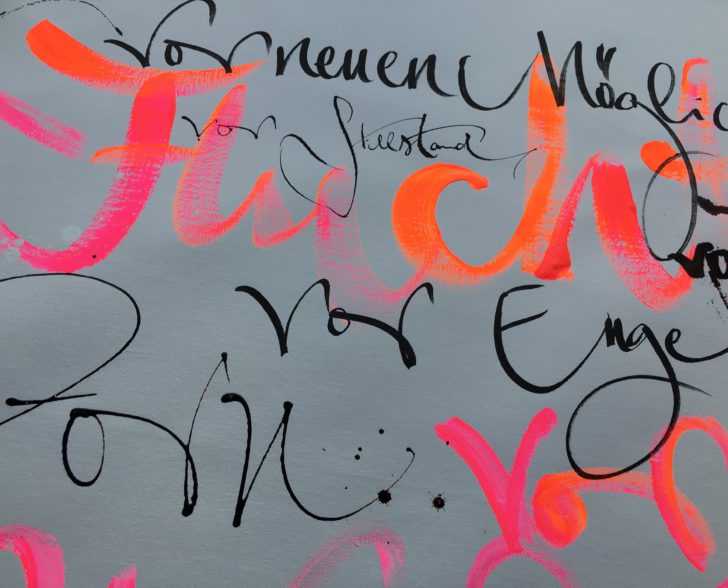 vor neuen Möglic
vor Stillstand
Flucht
vor
vor Enge
Zorn.
Vor